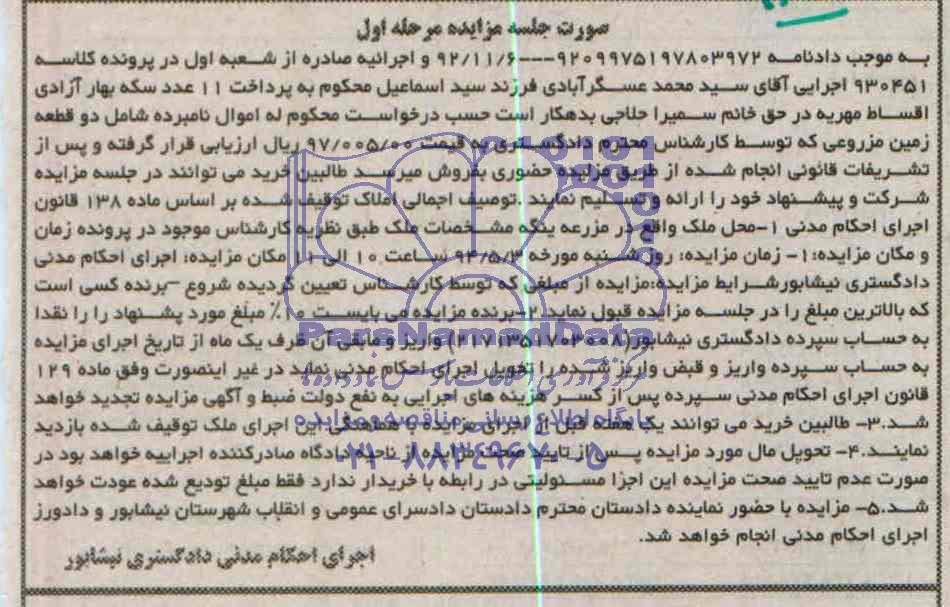 صورت جلسه مزایده مرحله اول
به موجب دادنامه ۹۲۰۹۹۷۵۱۹۷۸۰۳۹۷۲---۹۲/۱۱/۶ و اجرائیه صادره از شعبه اول در پرونده کلاسه
۹۳۰۴۵۱ اجرایی آقای سید محمد عسگرآبادی فرزند سید اسماعیل محکوم به پرداخت ۱۱ عدد سکه بهار آزادی
اقساط مهریه در حق خانم سمیرا حلاجی بدهکار است حسب درخواست محکوم له اموال نامبرده شامل دو قطعه
زمین مزروعی که توسط کارشناس محترم دادگستری به قیمت ۹۷/۰۰۵/۰۰ ریال ارزیابی قرار گرفته و پس از
تشریفات قانونی انجام شده از طریق مزایده حضوری بفروش میرسد طالبین خرید می توانند در جلسه مزایده
شرکت و پیشنهاد خود را ارائه و تسلیم نمایند .توصیف اجمالی املاک توقیف شده بر اساس ماده ۱۳۸ قانون
اجرای احکام مدنی ۱-محل ملک واقع در مزرعه ینگه مشخصات ملک طبق نظریه کارشناس موجود در پرونده زمان
و مکان مزایده:۱- زمان مزایده: روز شنبه مورخه ۹۴/۵/۳ ساعت ۱۰ الی ۱۱ مکان مزایده: اجرای احکام مدنی
دادگستری نیشابورشرایط مزایده:مزایده از مبلغی که توسط کارشناس تعیین گردیده شروع -برنده کسی است
که بالاترین مبلغ را در جلسه مزایده قبول نماید.۲-برنده مزایده می بایست ۱۰٪ مبلغ مورد پشنهاد را را نقدا
به حساب سپرده دادگستری نیشابور(۲۱۷۱۳۵۱۷۰۳۰۰۸) واریز و مابقی آن ظرف یک ماه از تاریخ اجرای مزایده
به حساب سپرده واریز و قبض واریز شده را تحویل اجرای احکام مدنی نماید در غیر اینصورت وفق ماده ۱۲۹
قانون اجرای احکام مدنی سپرده پس از کسر هزینه های اجرایی به نفع دولت ضبط و آگهی مزایده تجدید خواهد
شد.۳- طالبین خرید می توانند یک هفته قبل از اجرای مزایده با هماهنگی این اجرای ملک توقیف شده بازدید
نمایند.۴- تحویل مال مورد مزایده پس از تایید صحت مزایده از ناحیه دادگاه صادرکننده اجراییه خواهد بود در
صورت عدم تایید صحت مزایده این اجرا مسئولیتی در رابطه با خریدار ندارد فقط مبلغ تودیع شده عودت خواهد
شد.۵- مزایده با حضور نماینده دادستان محترم دادستان دادسرای عمومی و انقلاب شهرستان نیشابور و دادورز
اجرای احکام مدنی انجام خواهد شد.
اجرای احکام مدنی دادگستری نیشابور
ParsNamadData
پایگاه اطلاع رسانی مناقصه و مزایده
۰۲۱-۸۸۳۴۹۶۷۰-۵